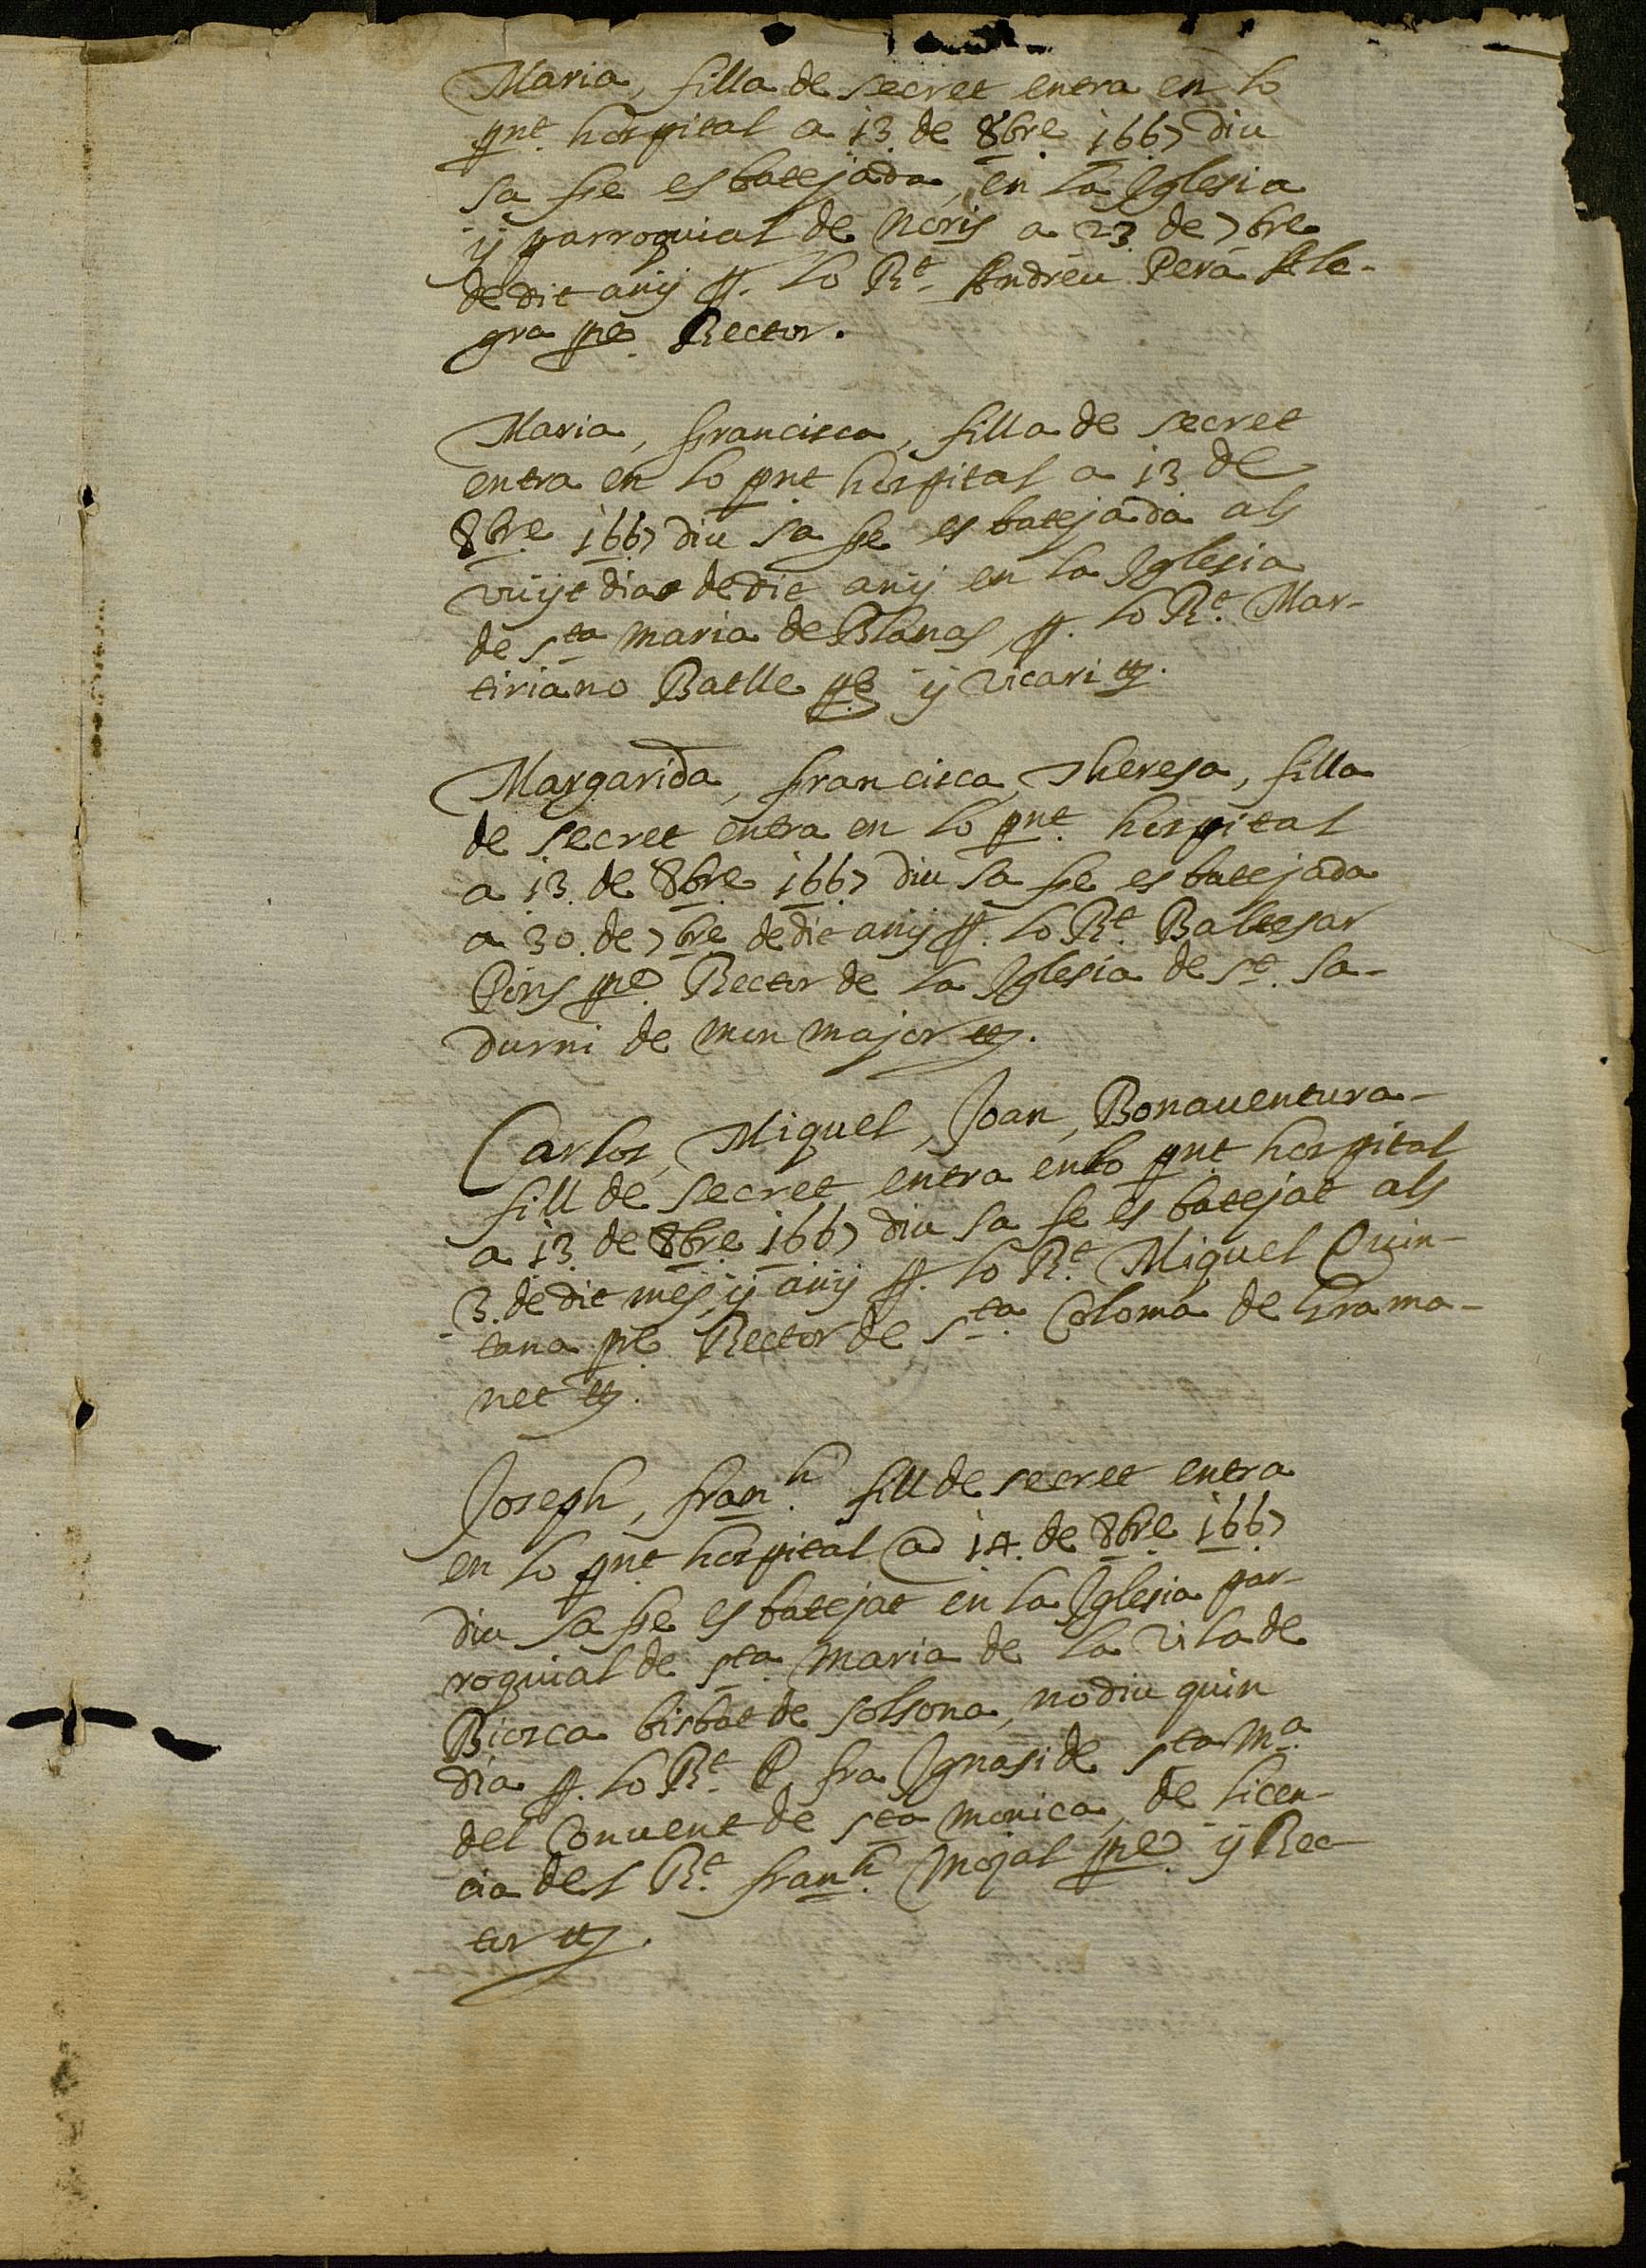 Maria, filla de secret entra en lo
pnt. hospital a 13. de 8bre. 1667 diu
sa fe es batejada, en la Iglesia
y parroquial de noris a 23. de 7bre
de dit any pr. lo Rt. Andreu Pera Ale-
gra pre. Rector.
Maria, francisca, filla de secret
entra en lo pnt hospital a 13 de
8bre 1667 diu sa fe es batejada als
vuyt dias de dit any en la Iglesia
de sta maria de Blanas, pr. lo Rt. Mar-
tiriano Batlle pre y vicari etc.
Margarida, francisca, Theresa, filla
de secret entra en lo pnt. hospital
a 13. de 8bre 1667 diu sa fe es batejada
a 30. de 7bre de dit any pr. lo Rt. Baltesar
Pons pre. Rector de la Iglesia de St. Sa-
durni de mon major etc.
Carlos, Miquel, Joan, Bonaventura-
fill de secret entra en lo pnt hospital
a 13. de 8bre 1667 diu sa fe es batejat als
3. de dit mes, y any pr. lo Rt. Miquel Quin-
tana pre. Rector de Sta. Coloma de Grama-
net etc.
Joseph, franh. fill de secret entra
en lo pnt hospital a 14. de 8bre. 1667
diu sa fe es batejat en la Iglesia par-
roquial de sta. maria de la vila de
Biosca bisbat de solsona, no diu quin
dia pr. lo Rt. P. fra Ignasi de Sta Ma.
del Convent de sta monica, de licen-
cia del Rt. franh. Mojal pre. y Rec-
tor etc.